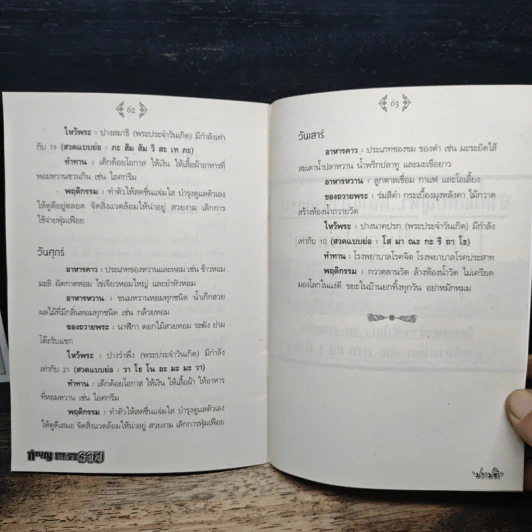 62
ไหว้พระ : ปางสมาธิ (พระประจำวันเกิด) มีกำลังเท่า
กับ 19 (สวดแบบย่อ : ภะ สัม สัม วิ สะ เท ภะ)
ทำทาน : เด็กด้อยโอกาส ให้เงิน ให้เสื้อผ้าอาหารที่
หอมหวานชวนกิน เช่น ไอศกรีม
พฤติกรรม : ทำตัวให้สดชื่นแจ่มใส บำรุงดูแลตัวเอง
ให้ดูดีอยู่ตลอด จัดสิ่งแวดล้อมให้น่าอยู่ สวยงาม เลิกการ
ใช้จ่ายฟุ่มเฟือย
วันศุกร์
อาหารคาว : ประเภทของหวานและหอม เช่น ข้าวหอม
มะลิ ผัดกาดหอม ไข่เจียวหอมใหญ่ และยำหัวหอม
อาหารหวาน : ขนมหวานหอมทุกชนิด น้ำเก๊กฮวย
ผลไม้ที่มีกลิ่นหอมทุกชนิด เช่น กล้วยหอม
ของถวายพระ : นาฬิกา ดอกไม้สวยหอม ระฆัง ย่าม
โต๊ะรับแขก
ไหว้พระ : ปางรำพึง (พระประจำวันเกิด) มีกำลัง
เท่ากับ 21 (สวดแบบย่อ : วา โธ โน อะ มะ มะ วา)
ทำทาน : เด็กด้อยโอกาส ให้เงิน ให้เสื้อผ้า ให้อาหาร
ที่หอมหวาน เช่น ไอศกรีม
พฤติกรรม : ทำตัวให้สดชื่นแจ่มใส บำรุงดูแลตัวเอง
ให้ดูดีเสมอ จัดสิ่งแวดล้อมให้น่าอยู่ สวยงาม เลิกการฟุ่มเฟือย
ทำบุญ รวย
63
วันเสาร์
อาหารคาว : ประเภทของขม ของดำ เช่น มะระยัดไส้
สะเดาน้ำปลาหวาน น้ำพริกปลาทู และมะเขือยาว
อาหารหวาน : ลูกตาลเชื่อม กาแฟ และโอเลี้ยง
ของถวายพระ : ร่มสีดำ กระเบื้องมุงหลังคา ไม้กวาด
สร้างห้องน้ำถวายวัด
ไหว้พระ : ปางนาคปรก (พระประจำวันเกิด) มีกำลัง
เท่ากับ 10 (สวดแบบย่อ : โส มา ณะ กะ ริ ถา โธ)
ทำทาน : โรงพยาบาลโรคจิต โรงพยาบาลโรคประสาท
พฤติกรรม : กวาดลานวัด ล้างห้องน้ำวัด ไม่เครียด
มองโลกในแง่ดี ขยะในบ้านยกทิ้งทุกวัน อย่าหมักหมม